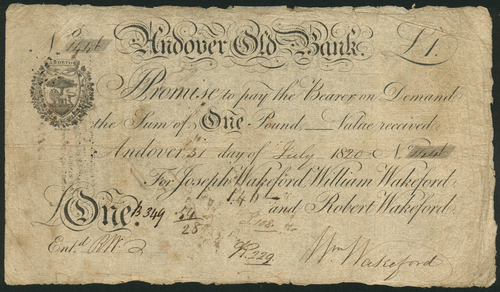 Andover Old Bank. £1.
I Promise to pay the Bearer on Demand
the Sum of One Pound Value received
Andover 31 day of July 1820 N
For Joseph Wakeford, William Wakeford,
and Robert Wakeford.
£One.
Ent.d RW
Wm Wakeford